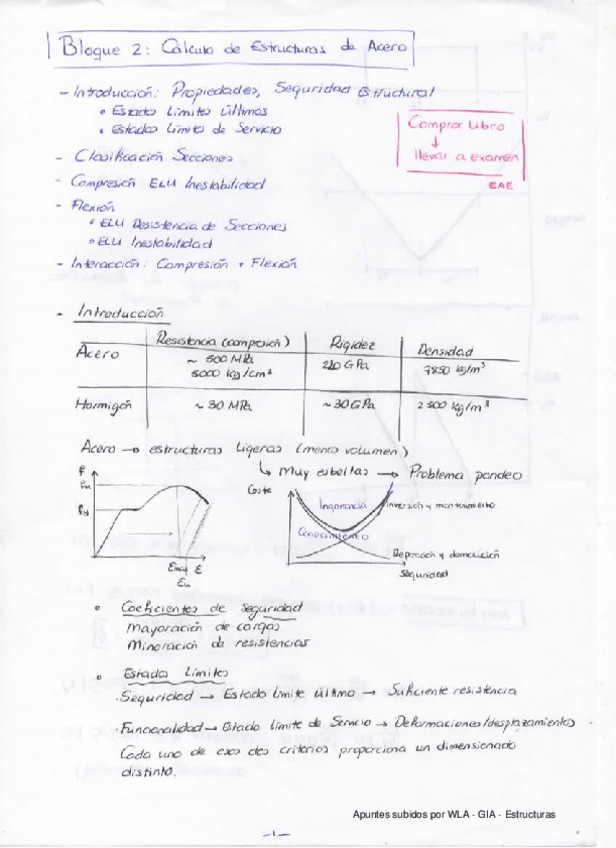 Bloque 2: Cálculo de Estructuras de Acero
- Introducción: Propiedades, Seguridad Estructural
• Estados Límites Últimos
• Estados Límite de Servicio
Comprar Libro
↓
llevar a examen
EAE
- Clasificación Secciones
- Compresión ELU Inestabilidad
- Flexión
• ELU Resistencia de Secciones
• ELU Inestabilidad
- Interacción: Compresión + Flexión
- Introducción
Resistencia (compresión) Rigidez Densidad
Acero ~ 500 MPa 210 GPa 7850 kg/m³
5000 kg/cm²
Hormigón ~ 30 MPa ~ 30 GPa 2500 kg/m³
Acero → estructuras ligeras (menos volumen)
↳ Muy esbeltas → Problema pandeo
f
fu
fy
ε
εu
Coste
Ignorancia
Inversión y mantenimiento
Conocimiento
Reparación y demolición
Seguridad
• Coeficientes de seguridad
Mayoración de cargas
Minoración de resistencias
• Estados Límites
·Seguridad → Estado límite último → Suficiente resistencia
·Funcionalidad → Estado límite de Servicio → Deformaciones/desplazamientos
Cada uno de esos dos criterios proporciona un dimensionado
distinto.
Apuntes subidos por WLA - GIA - Estructuras
-1-